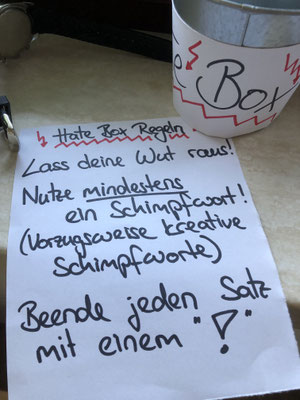 Box
Hate Box Regeln
Lass deine Wut raus!
Nutze mindestens
ein Schimpfwort!
(Vorzugsweise kreative
Schimpfworte)
Beende jeden Satz
mit einem "!"